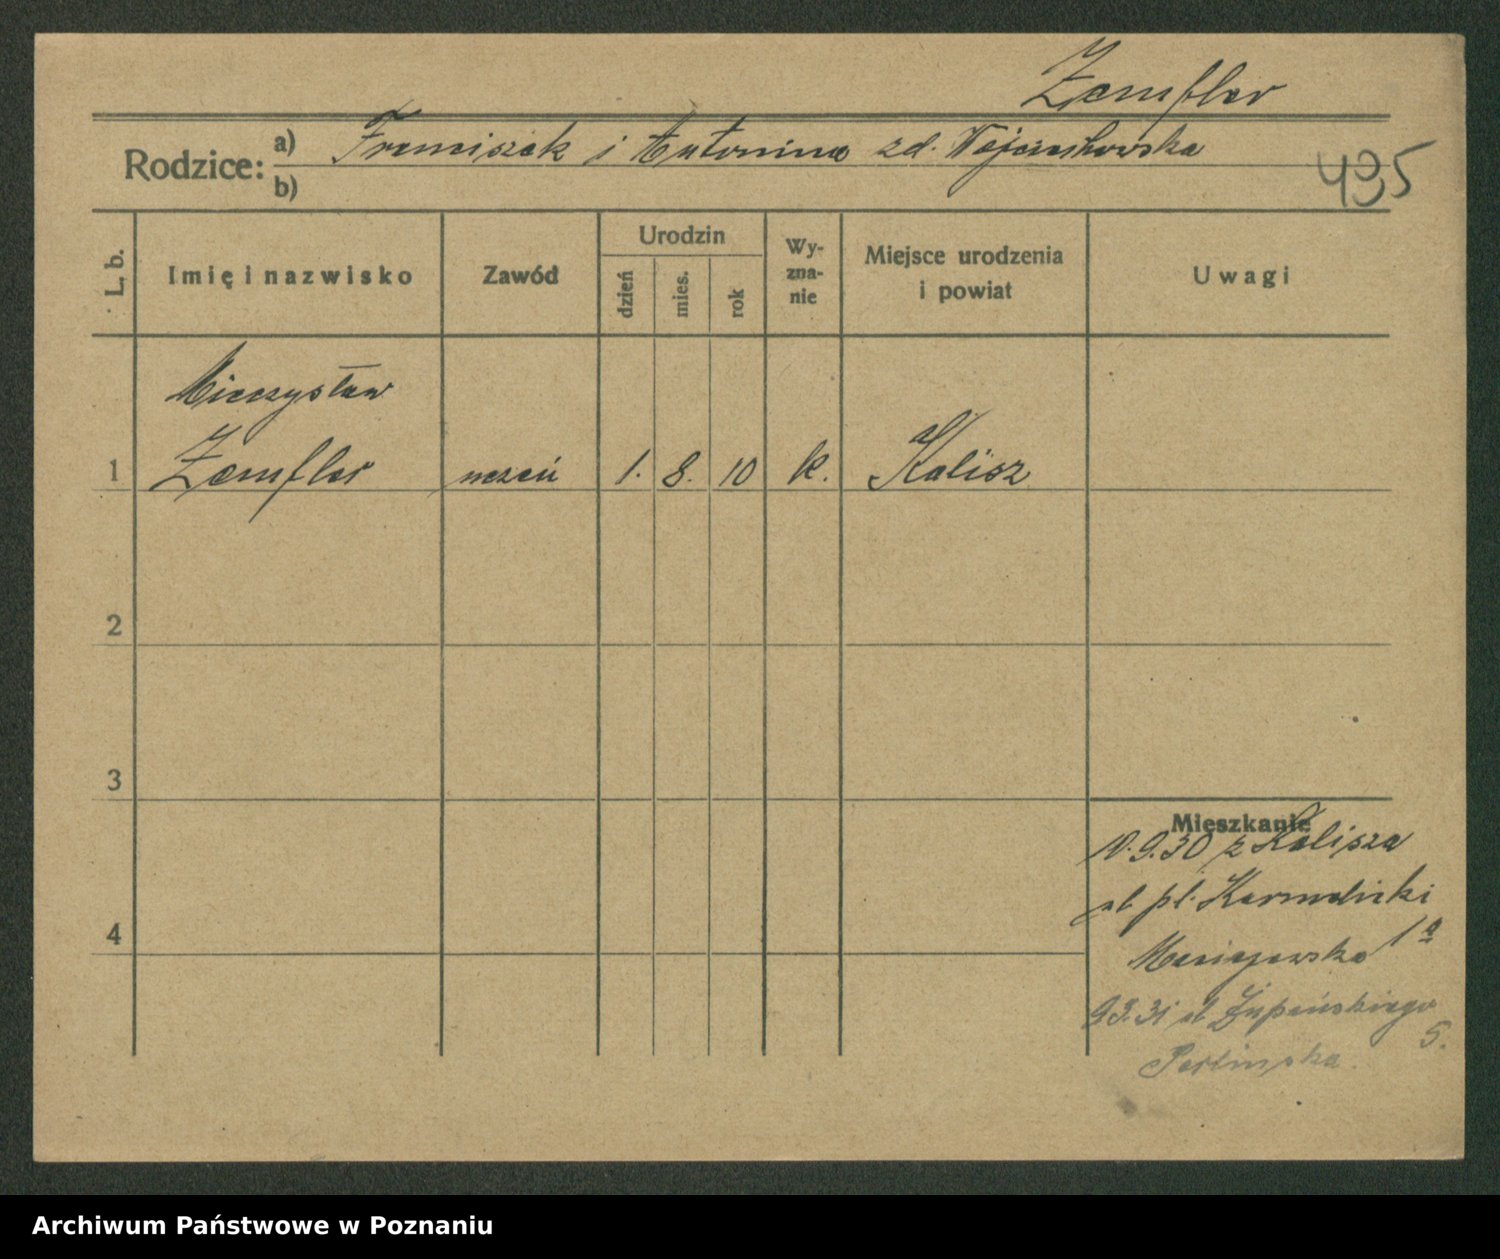 Zemfler
Rodzice: a) Franciszek i Antonina zd. Wojciechowska
b)
495
L. b.
Imię i nazwisko
Zawód
Urodzin
dzień
mies.
rok
Wy-
zna-
nie
Miejsce urodzenia
i powiat
Uwagi
Mieczysław
1 Zemfler uczeń 1. 8. 10 k. Kalisz
2
3
4
Mieszkanie
10.9.30 z Kalisza
pl. Karmelicki
1a
9.3.31 ul. Żupańskiego
5.
Archiwum Państwowe w Poznaniu